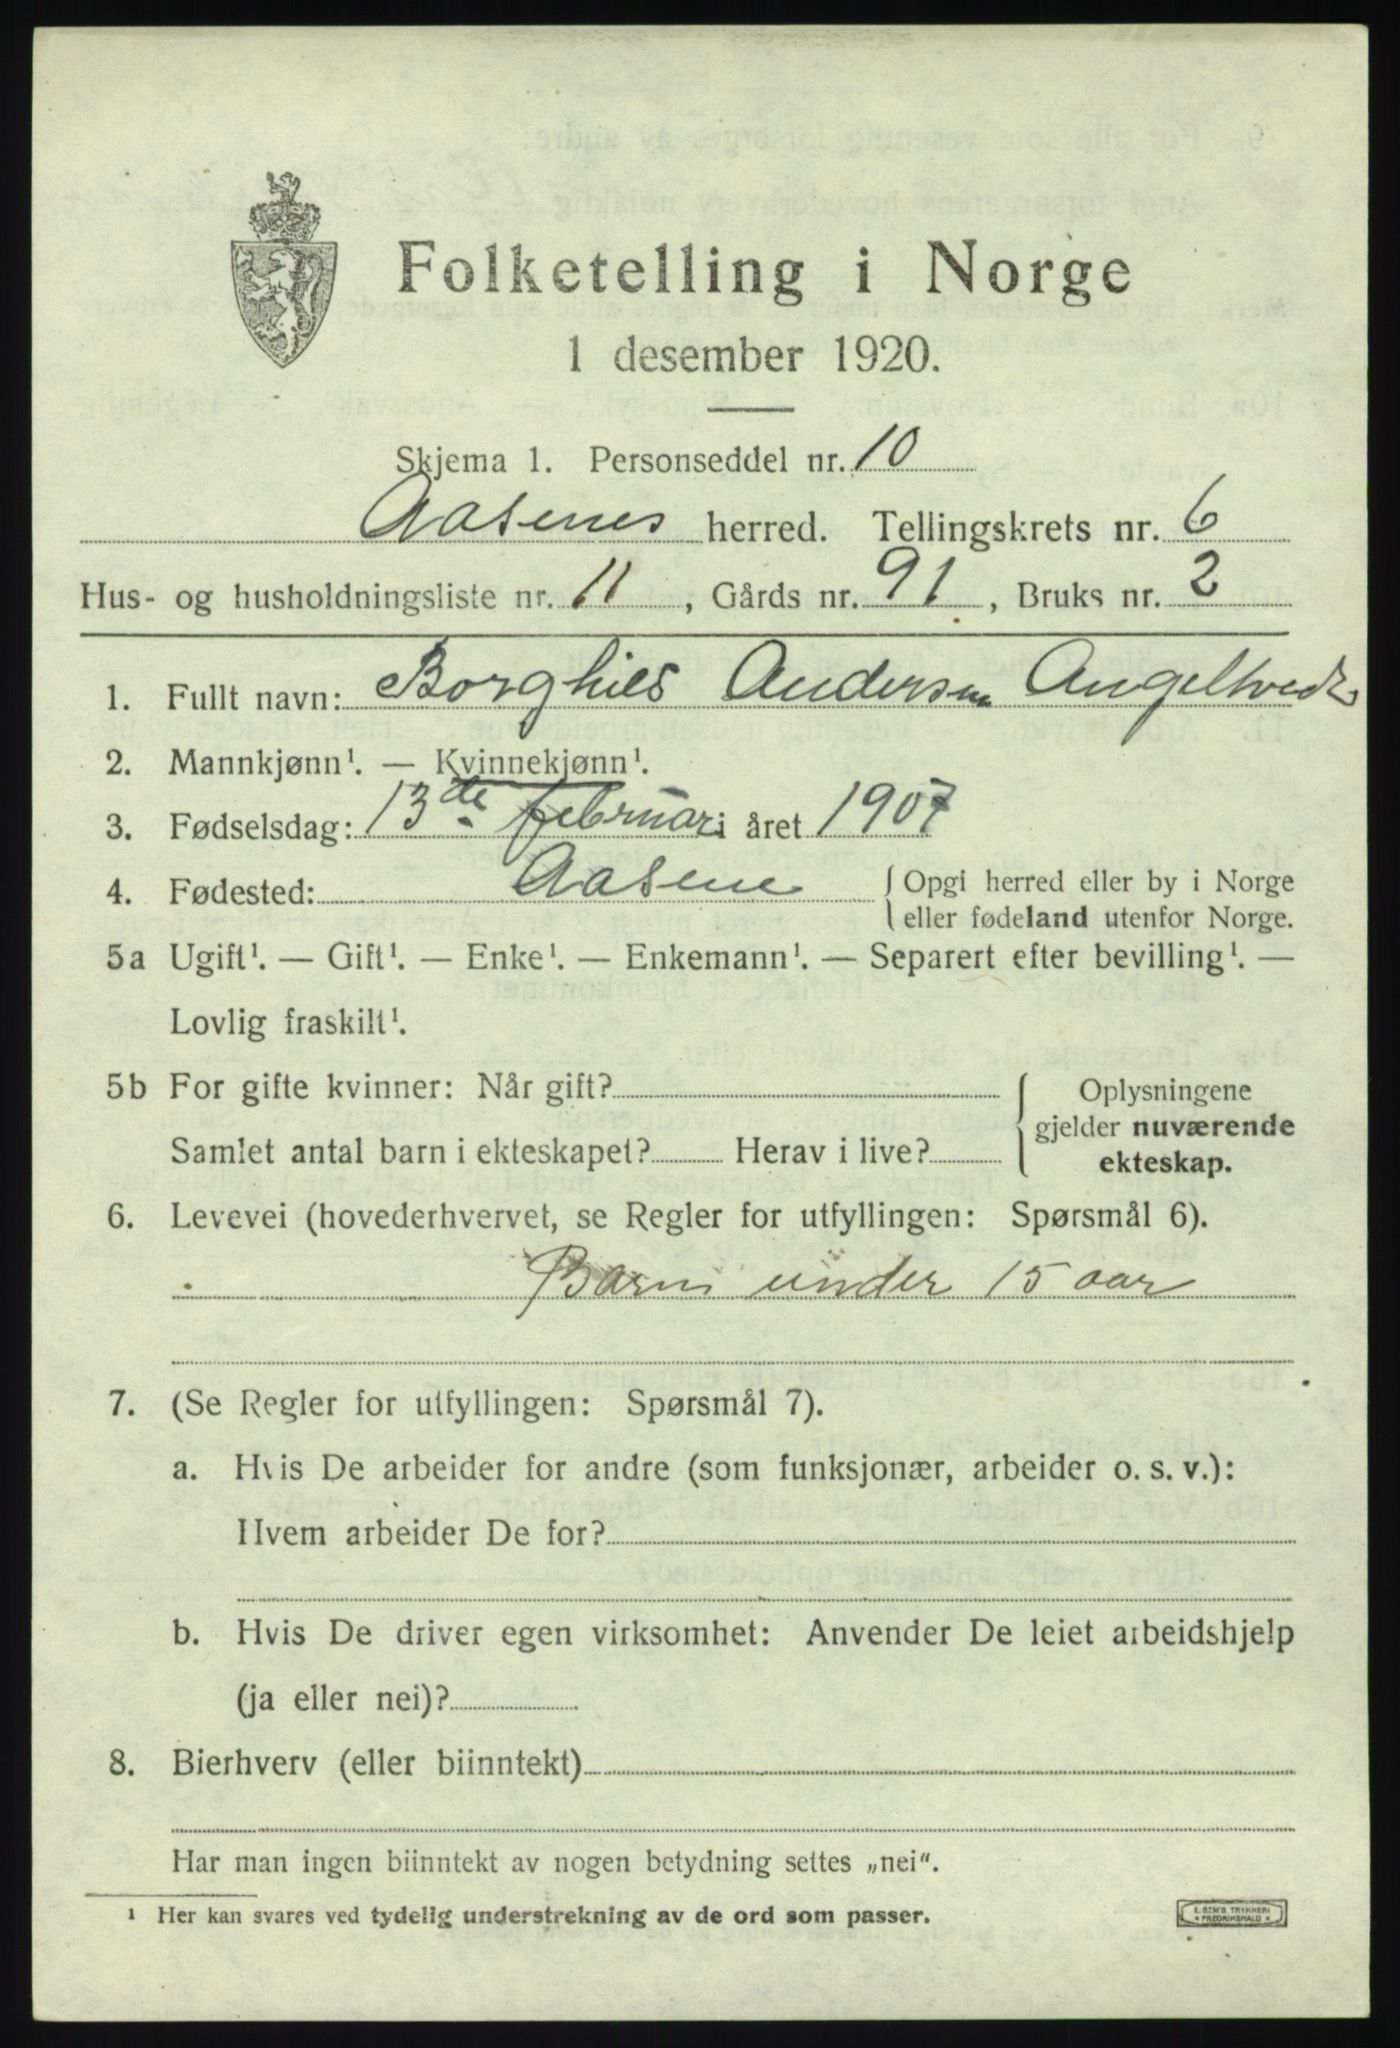 Folketelling i Norge
1 desember 1920.
Skjema 1. Personseddel nr. 10
Aasenes herred. Tellingskrets nr. 6
Hus- og husholdningsliste nr. 11, Gårds nr. 91, Bruks nr. 2
1. Fullt navn: Borghild Andersen Angeltvedt
2. Mannkjønn¹. — Kvinnekjønn¹.
3. Fødselsdag: 13de februar i året 1907
4. Fødested: Aasene { Opgi herred eller by i Norge
eller fødeland utenfor Norge.
5a Ugift¹. — Gift¹. — Enke¹. — Enkemann¹. — Separert efter bevilling¹. —
Lovlig fraskilt¹.
5b For gifte kvinner: Når gift?
Samlet antal barn i ekteskapet? Herav i live?
{ Oplysningene
gjelder nuværende
ekteskap.
6. Levevei (hovederhvervet, se Regler for utfyllingen: Spørsmål 6).
Barn under 15 aar
7. (Se Regler for utfyllingen: Spørsmål 7).
a. Hvis De arbeider for andre (som funksjonær, arbeider o. s. v.):
Hvem arbeider De for?
b. Hvis De driver egen virksomhet: Anvender De leiet arbeidshjelp
(ja eller nei)?
8. Bierhverv (eller biinntekt)
Har man ingen biinntekt av nogen betydning settes „nei“.
¹ Her kan svares ved tydelig understrekning av de ord som passer.
E. SEM'S TRYKKERI
* FREDRIKSHALD *